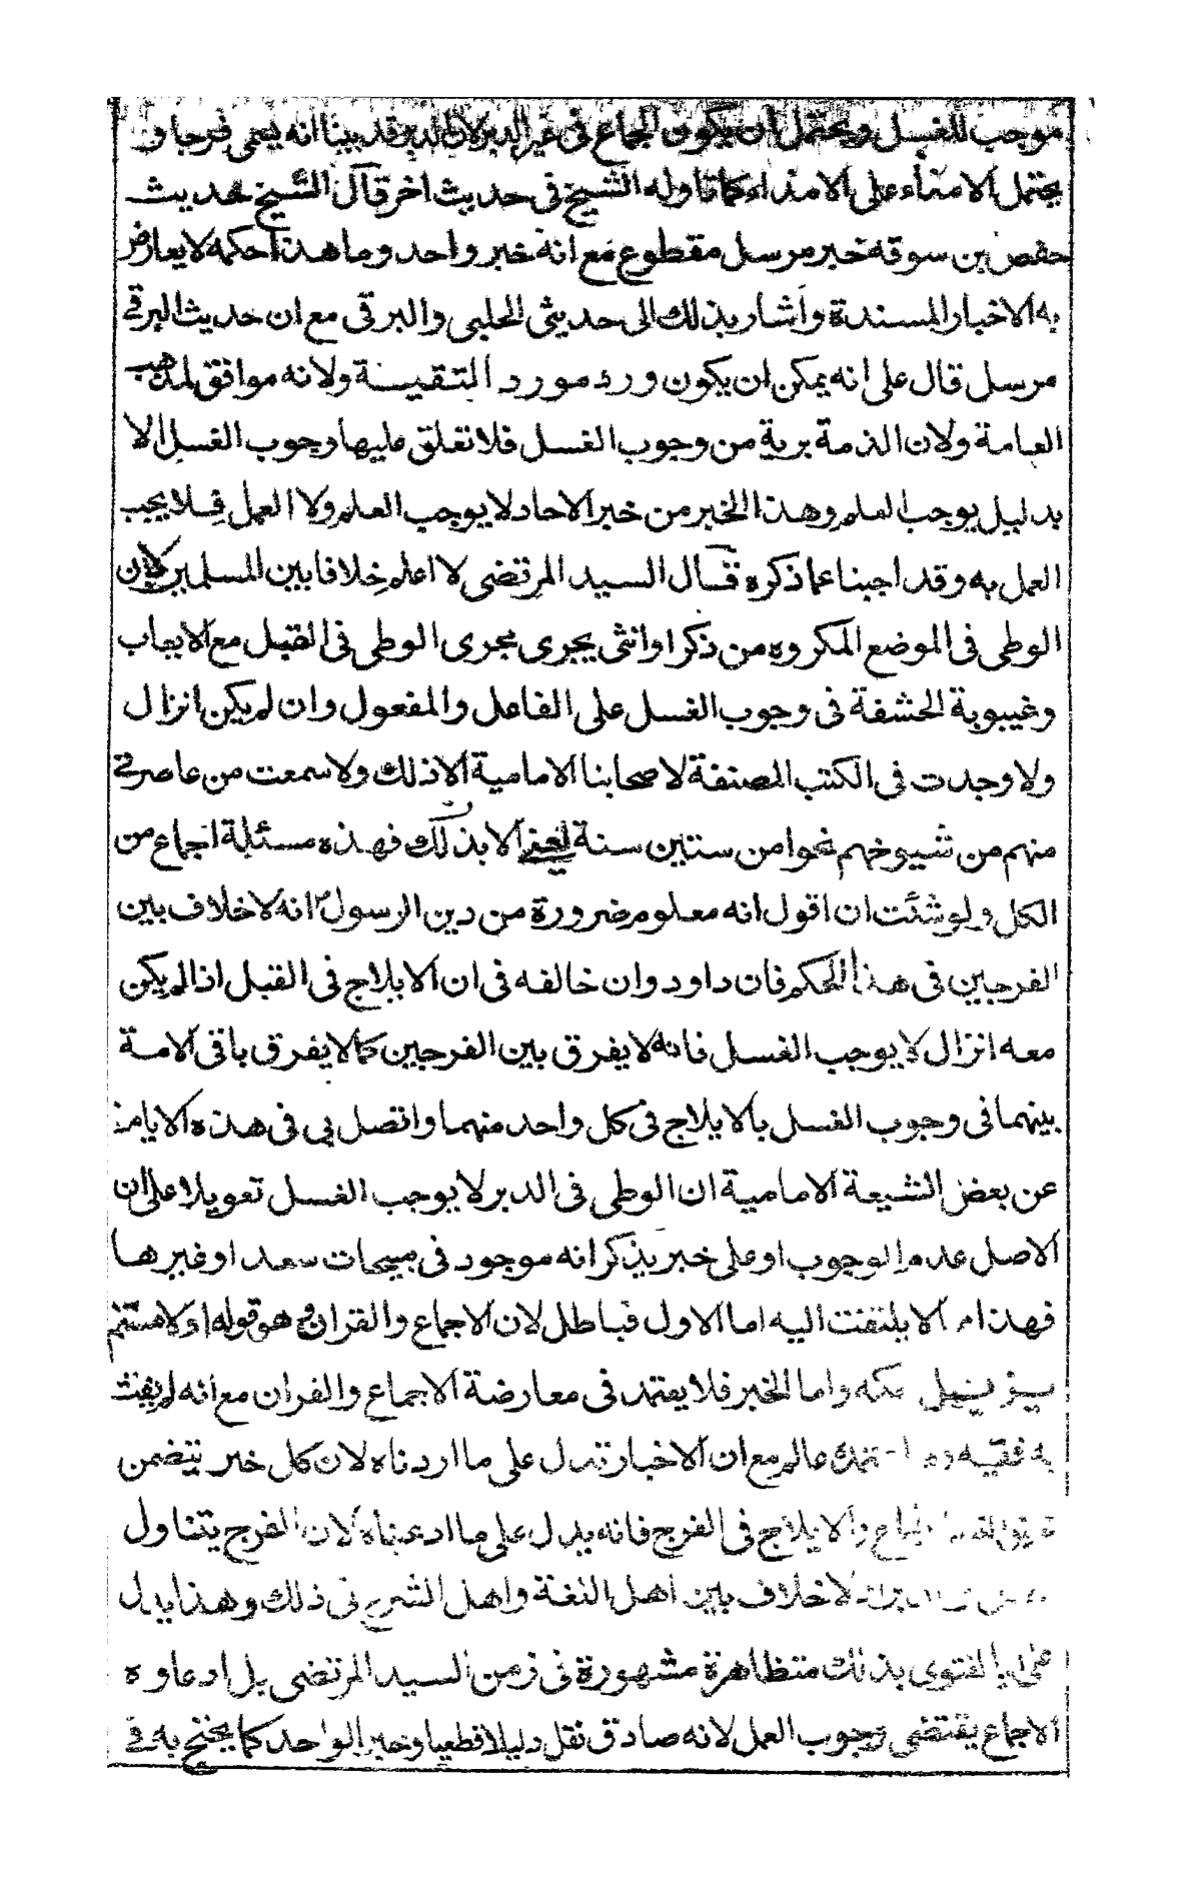 موجب للغسل ويحتمل ان يكون الجماع فى غير الدبر لان الدبر قد بينا انه يسمى فرجا و
يحتمل الامناء على الامذاء كما تاوله الشيخ فى حديث اخر قال الشيخ حديث
حفص بن سوقة خبر مرسل مقطوع مع انه خبر واحد وما هذا حكمه لا يعارض
به الاخبار المسندة واشار بذلك الى حديثى الحلبى والبرقى مع ان حديث البرقى
مرسل قال على انه يمكن ان يكون ورد مورد التقية ولانه موافق لمذهب
العامة ولان الذمة برية من وجوب الغسل فلا تعلق عليها وجوب الغسل الا
بدليل يوجب العلم وهذا الخبر من خبر الاحاد لا يوجب العلم ولا العمل فلا يجب
العمل به وقد اجبنا عما ذكره قال السيد المرتضى لا اعلم خلافا بين المسلمين لان
الوطى فى الموضع المكروه من ذكر او انثى يجرى مجرى الوطى فى القبل مع الايجاب
وغيبوبة الحشفة فى وجوب الغسل على الفاعل والمفعول وان لم يكن انزال
ولا وجدت فى الكتب المصنفة لاصحابنا الامامية الا ذلك ولا سمعت من عاصرنى
منهم من شيوخهم نحوا من ستين سنة الا بذلك فهذه مسئلة اجماع من
الكل ولو شئت ان اقول انه معلوم ضرورة من دين الرسول انه لا خلاف بين
الفرجين فى هذا الحكم فان داود وان خالفه فى ان الايلاج فى القبل اذا لم يكن
معه انزال لا يوجب الغسل فانه لا يفرق بين الفرجين كما لا يفرق باقى الامة
بينهما فى وجوب الغسل بالايلاج فى كل واحد منهما واتصل بى فى هذه الايام
عن بعض الشيعة الامامية ان الوطى فى الدبر لا يوجب الغسل تعويلا على ان
الاصل عدم الوجوب او على خبر يذكر انه موجود فى سعد او غيرها
فهذا لا يلتفت اليه اما الاول فباطل لان الاجماع والقران وهو قوله او لامستم
واما الخبر فلا يعتمد فى معارضة الاجماع والقران مع انه لم يفت
به فقيه عالم مع ان الاخبار تدل على ما اردناه لان كل خبر يتضمن
والايلاج فى الفرج فانه يدل على ما ادعيناه لان الفرج يتناول
لا خلاف بين اهل اللغة واهل الشرع فى ذلك وهذا يدل
الفتوى بذلك متظاهرة مشهورة فى زمن السيد المرتضى بل ادعاوه
الاجماع يقتضى وجوب العمل لانه صادق نقل دليلا قطعيا وخبر الواحد كما يحتج به فى